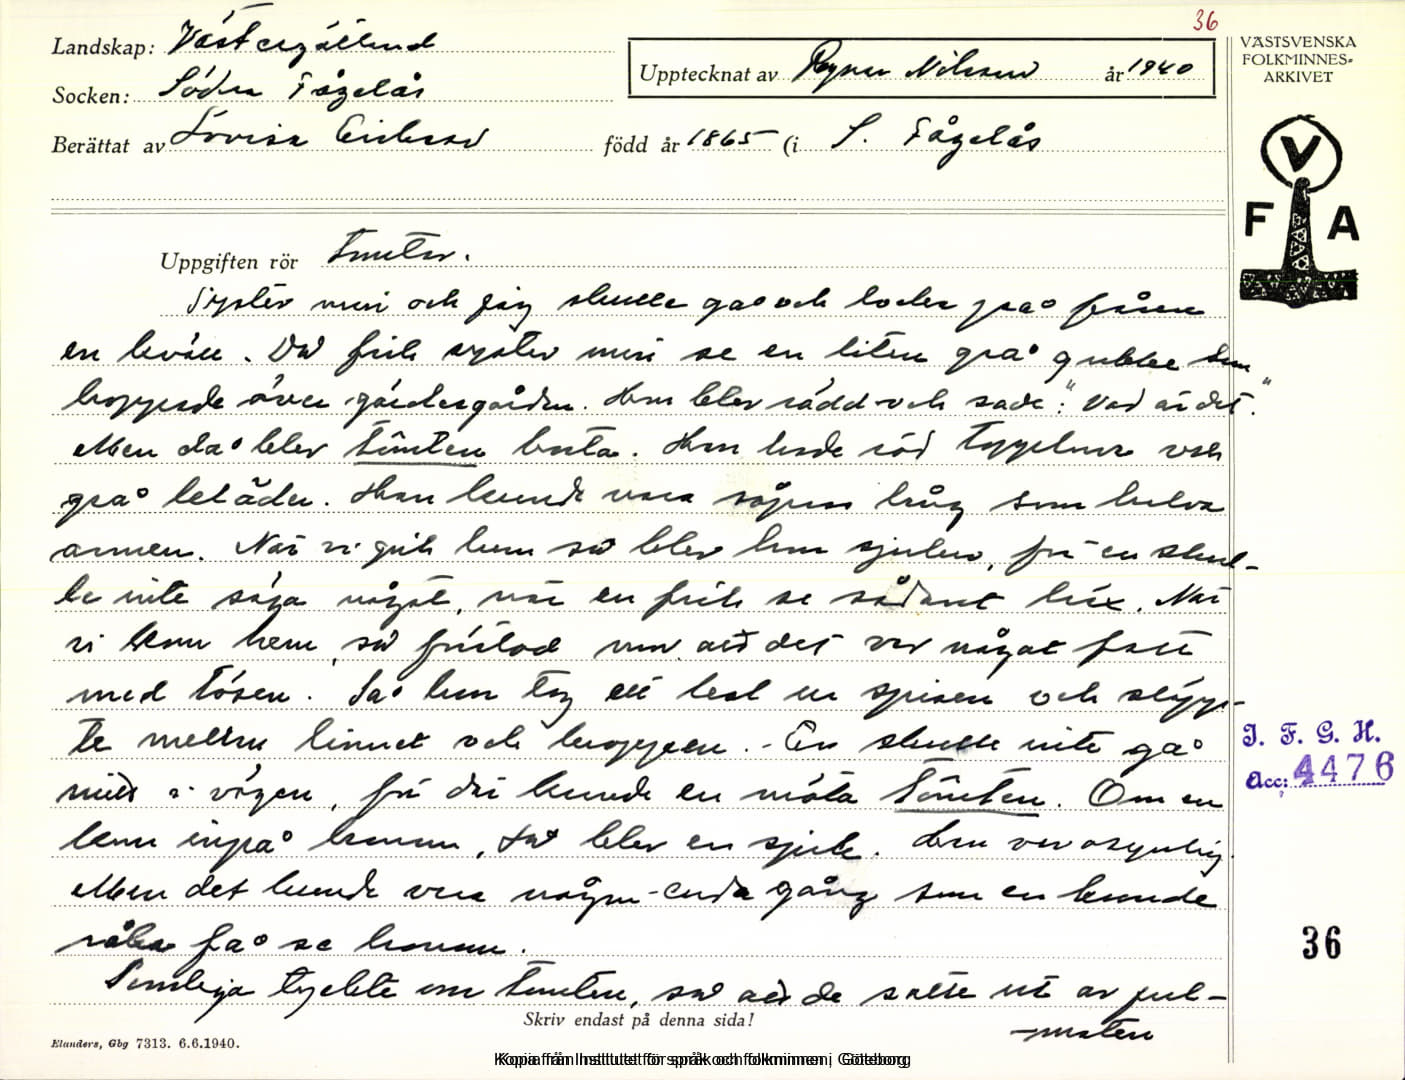 36
Landskap: Västergötland
Socken: Södra Fågelås
Upptecknat av Ragnar Nilsson år 1940
Berättat av Lovisa Eriksson född år 1865 (i S. Fågelås
VÄSTSVENSKA
FOLKMINNES-
ARKIVET
V
F A
Uppgiften rör Tomtar.
Syster min och jag skulle gå och locka på fåren
en kväll. Då fick syster min se en liten grå gubbe som
hoppade över gärdesgården. Hon blev rädd och sade: "Vad är det".
Men då blev tomten borta. Han hade röd toppluva och
grå kläder. Han kunde vara såpass lång som halva
armen. När vi gick hem så blev hon sjuker, för en skul-
le inte säga något, när en fick se sådant här. När
vi kom hem, så förstod mor att det var något fatt
med tösen. Så hon tog ett kol ur spisen och släpp-
te mellan linnet och kroppen. - En skulle inte gå
mitt i vägen, för där kunde en möta tomten. Om en
kom inpå honom, så blev en sjuk. Han var osynlig.
Men det kunde vara någon enda gång som en kunde
råka få se honom.
Somliga tyckte om tomten, så att de satte ut av jul-
maten
Skriv endast på denna sida!
I. F. G. H.
Acc: 4476
36
Elanders, Gbg 7313. 6.6.1940.
Kopia från Institutet för språk och folkminnen i Göteborg